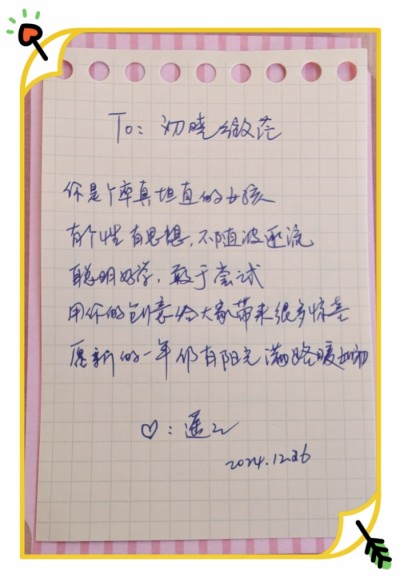 To: 初晓微茫
你是个率真坦直的女孩
有个性有思想，不随波逐流
聪明好学，敢于尝试
用你的创意给大家带来很多惊喜
愿新的一年仍有阳光满路暖如初
♡：遥
2024.12.26